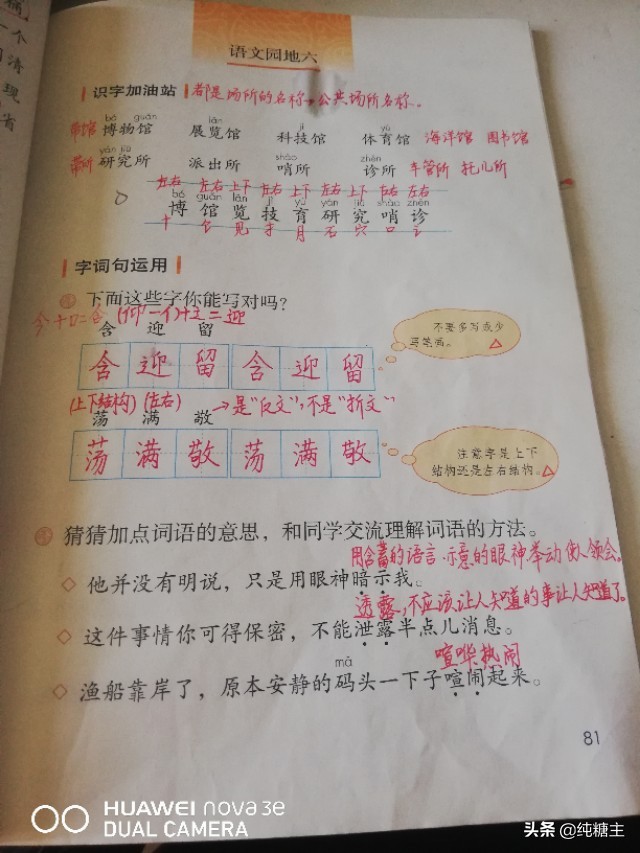 语文园地六
识字加油站 都是场所的名称→公共场所名称。
bó guǎn lǎn jì yù
博物馆 展览馆 科技馆 体育馆 海洋馆 图书馆
yán jiū shào zhěn
研究所 派出所 哨所 诊所 车管所 托儿所
左右 左右 上下 左右 上下 左右 上下 左右 左右
bó guǎn lǎn jì yù yán jiū shào zhěn
博 馆 览 技 育 研 究 哨 诊
十 饣 见 扌 月 石 穴 口 讠
字词句运用
下面这些字你能写对吗?
今+口=含 (仰-亻)+辶=迎
含 迎 留
含 迎 留 含 迎 留
不要多写或少写笔画。
(上下结构) (左右) →是“反文”,不是“折文”
荡 满 敬
荡 满 敬 荡 满 敬
注意字是上下结构还是左右结构。
猜猜加点词语的意思,和同学交流理解词语的方法。
用含蓄的语言、示意的眼神举动使人领会。
他并没有明说,只是用眼神暗示我。
透露,不应该让人知道的事让人知道了。
这件事情你可得保密,不能泄露半点儿消息。
喧哗热闹
mǎ
渔船靠岸了,原本安静的码头一下子喧闹起来。
81
HUAWEI nova 3e
DUAL CAMERA
头条 @纯糖主